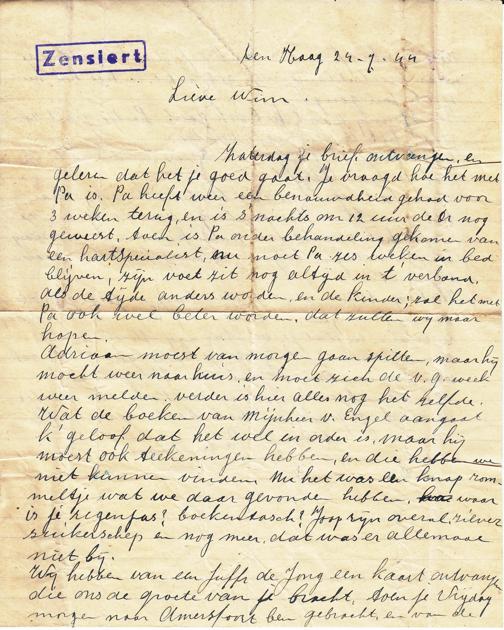 Zensiert
Den Haag 24-7-44
Lieve Wim.
Zaterdag je brief ontvangen, en
gelezen dat het je goed gaat. Je vraagd hoe het met
Pa is. Pa heeft weer een benauwdheid gehad voor
3 weken terug, en is s nachts om 12 uur de Dr nog
geweest, toen is Pa onder behandeling gekomen van
een hartspecialist, nu moet Pa zes weken in bed
blijven, zijn voet zit nog altyd in t' verband,
als de tyde anders worden, en de kinder, zal het met
Pa ook wel beter worden, dat zullen wy maar
hopen.
Adriaan moest van morgen gaan spitten, maar hy
mocht weer naar huis, en moet zich de v.g. week
weer melden. verder is hier alles nog het zelfde.
Wat de boeken van Mijnheer v. Engel aangaat
k' geloof dat het wel in orde is, maar hy
moest ook teekeningen hebben, en die hebben we
niet kunnen vinden. Nu het was een knap rom-
meltje wat we daar gevonden hebben, waar
is je regenjas? boekentasch? Joop zijn overal, zilver
suikerschep en nog meer, dat was er allemaal
niet bij.
Wy hebben van een Juffr de Jong een kaart ontvangen
die ons de groete van je bracht, toen je Vrijdag
morgen naar Amersfoort ben gebracht, en van de